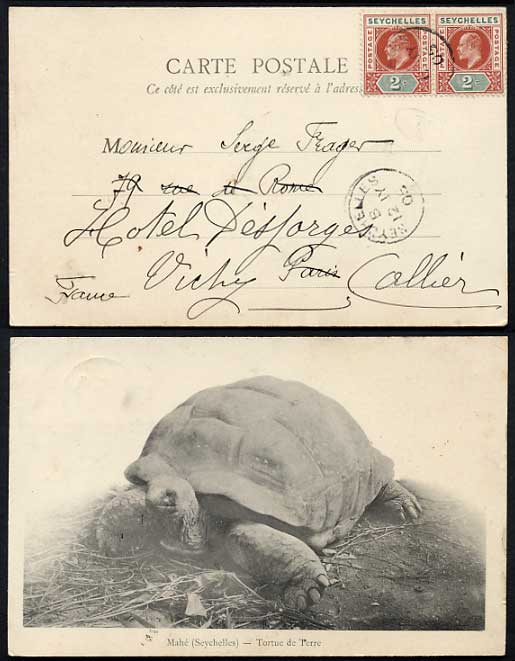 SEYCHELLES SEYCHELLES
POSTAGE POSTAGE POSTAGE POSTAGE
2c 2c
CARTE POSTALE
Ce côté est exclusivement réservé à l'adres
Monsieur Serge Frager
79 rue de Rome
Hotel Désforges
Vichy Paris Allier
France
SEYCHELLES
Mahé (Seychelles) — Tortue de Terre